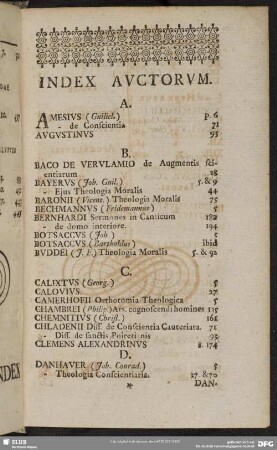 INDEX AVCTORVM.
A.
AMESIUS (Guilieh.) p. 6
- de Conscientia 71
AUGVSTINVS 93
B.
BACO DE VERVLAMIO de Augmentis sci-
entiarum 28
BAYERVS (Joh. Guil.) 5. & 9
- Ejus Theologia Moralis 44
BARONII (Vicent.) Theologia Moralis 75
BECHMANNVS (Fridemannus) 5
BERNHARDI Sermones in Canticum 182
- de domo interiore. 194
BOTSACCVS (Joh) 5
BOTSACCVS (Bartholdus) ibid
BVDDEI (J. F.) Theologia Moralis 5. & 92
C.
CALIXTVS (Georg.) 5
CALOVIUS 27
CAMERHOFII Orthotomia Theologica 5
CHAMBREI (Philip.) Ars. cognoscendi homines 115
CHEMNITIVS (Christ.) 162
CHLADENII Diss. de Conscientia Cauteriata. 71
- Diss. de sanctis Polreti nis 95
CLEMENS ALEXANDRINVS 8. 174
D.
DANHAVER (Joh. Conrad.) 5
- Theologia Conscientiaria. 27. & 70
* DAN-
NDEX
SLUB